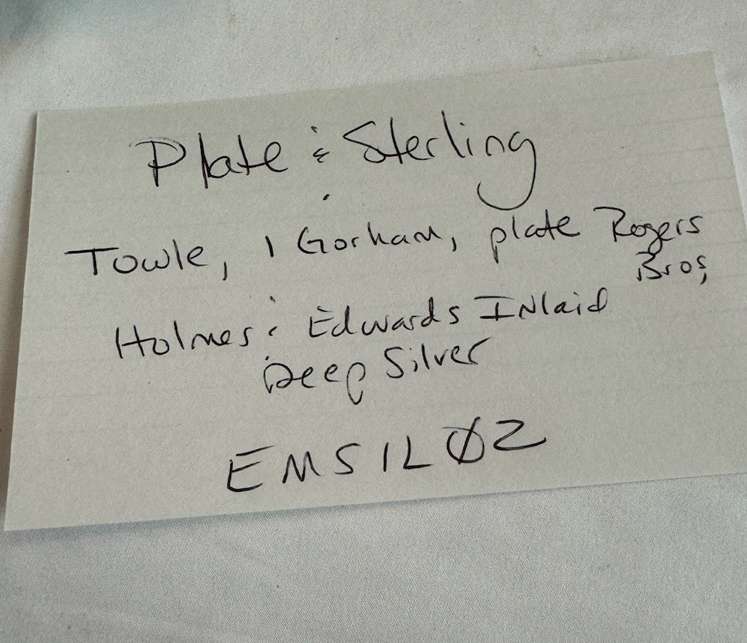 Plate & Sterling
Towle, 1 Gorham, plate Rogers
Bros,
Holmes & Edwards INlaid
Deep Silver
EMSIL02